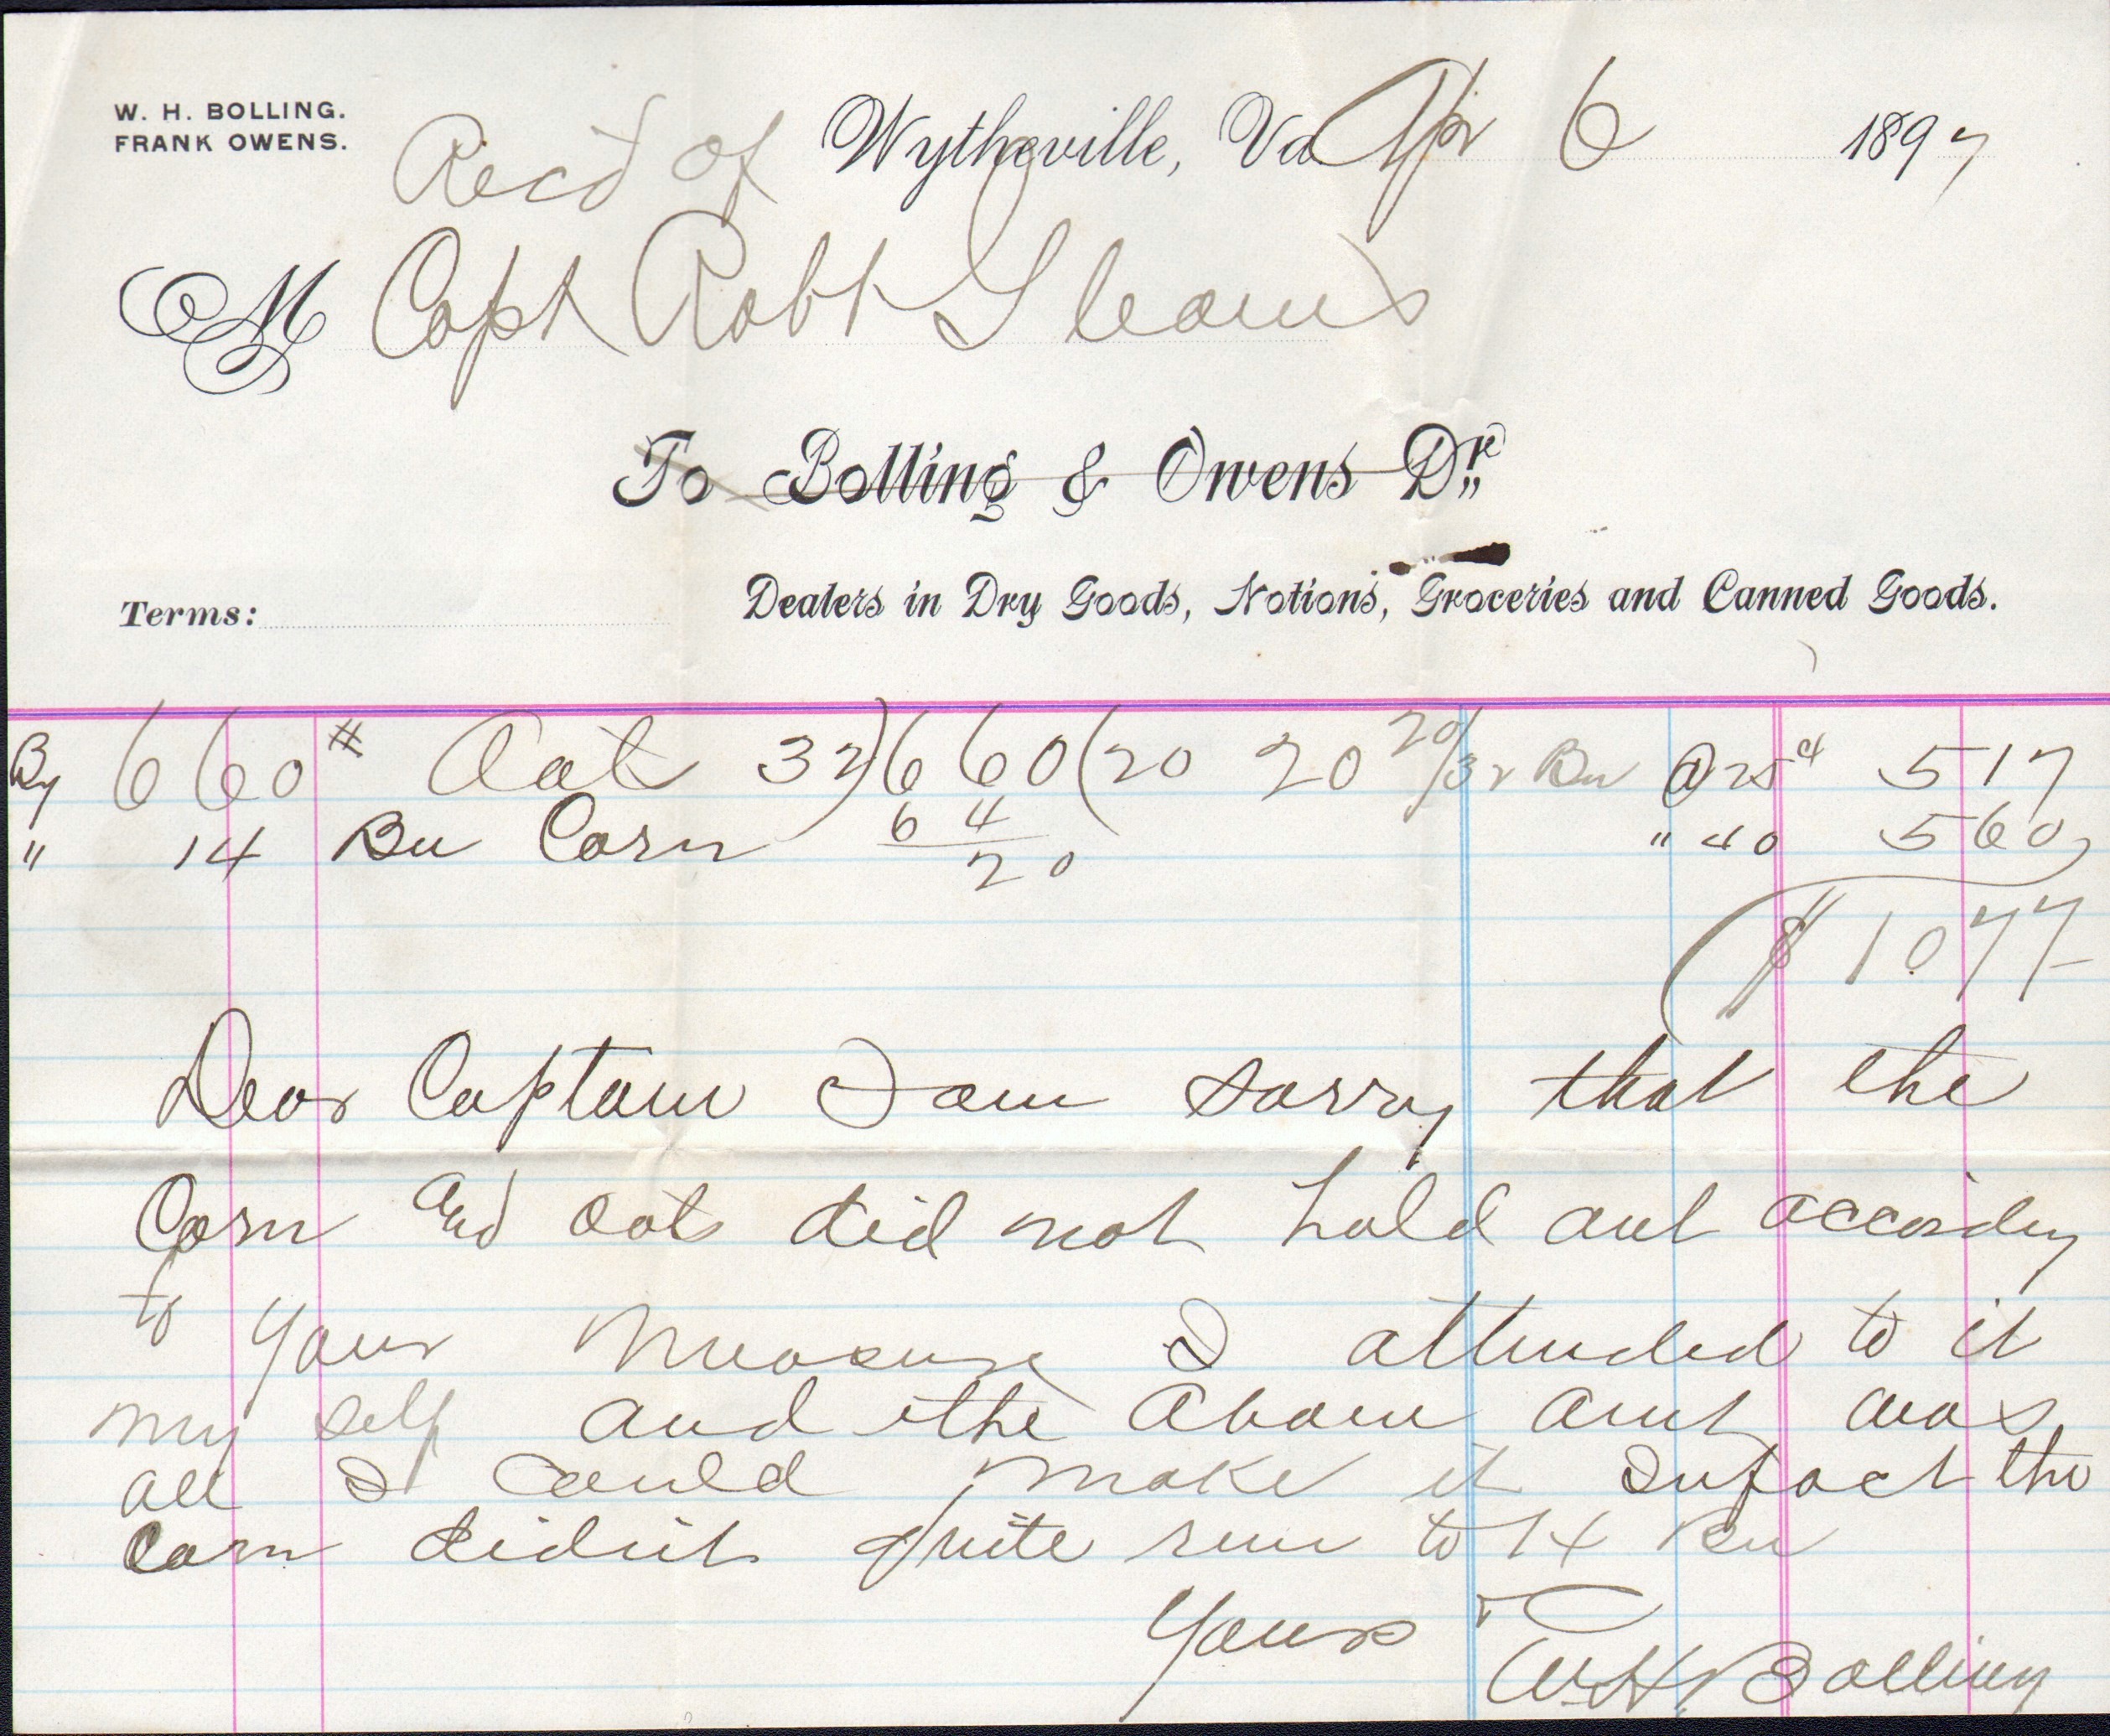 W. H. BOLLING.
FRANK OWENS.
Wytheville, Va Apr 6 1897
Recd of
M Capt Robt Gleaves
To Bolling & Owens Dr.
Terms: Dealers in Dry Goods, Notions, Groceries and Canned Goods.
By 660 # Oat 32)660(20 20 20/32 Bu @ 25 c 517
64
" 14 Bu Corn " 40 560
20
$ 10.77
Dear Captain I am sorry that the
Corn and oats did not hold out accordig
to your measure I attended to it
my self and the above amt was
all I could make it Infact the
corn didnt quite run to 14 Bu
Yours
W H Bolling